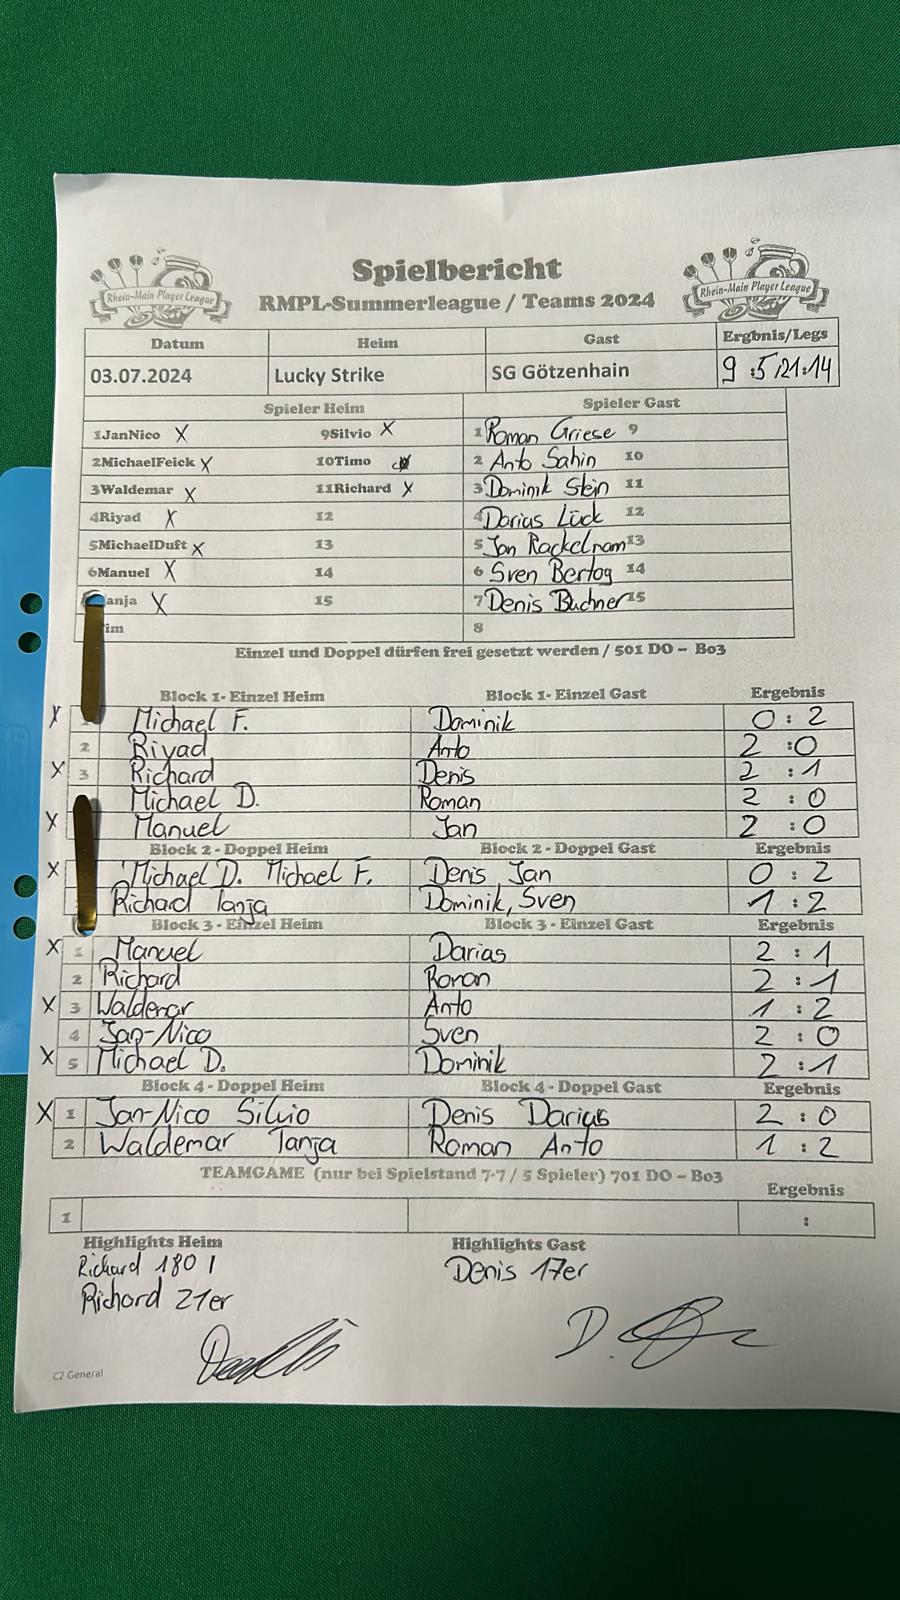 Spielbericht
RMPL-Summerleague / Teams 2024
Rhein-Main Player League
Rhein-Main Player League
Datum Heim Gast Ergbnis/Legs
03.07.2024 Lucky Strike SG Götzenhain 9:5/21:14
Spieler Heim Spieler Gast
1JanNico X 9Silvio X 1 Roman Griese 9
2MichaelFeick X 10Timo 2 Anto Sahin 10
3Waldemar X 11Richard X 3 Dominik Stein 11
4Riyad X 12 4 Darias Lück 12
5MichaelDuft X 13 5 Jan Rackelmam 13
6Manuel X 14 6 Sven Bertog 14
anja X 15 7 Denis Buchner 15
im 8
Einzel und Doppel dürfen frei gesetzt werden / 501 DO – Bo3
Block 1- Einzel Heim Block 1- Einzel Gast Ergebnis
X Michael F. Dominik 0 : 2
2 Riyad Anto 2 : 0
X 3 Richard Denis 2 : 1
Michael D. Roman 2 : 0
X Manuel Jan 2 : 0
Block 2 - Doppel Heim Block 2 - Doppel Gast Ergebnis
X Michael D. Michael F. Denis Jan 0 : 2
Richard Tanja Dominik, Sven 1 : 2
Block 3 - Einzel Heim Block 3 - Einzel Gast Ergebnis
X 1 Manuel Darias 2 : 1
2 Richard Roman 2 : 1
X 3 Waldemar Anto 1 : 2
4 Jan-Nico Sven 2 : 0
X 5 Michael D. Dominik 2 : 1
Block 4 - Doppel Heim Block 4 - Doppel Gast Ergebnis
X 1 Jan-Nico Silvio Denis Darias 2 : 0
2 Waldemar Tanja Roman Anto 1 : 2
TEAMGAME (nur bei Spielstand 7-7 / 5 Spieler) 701 DO – Bo3
Ergebnis
1 :
Highlights Heim Highlights Gast
Richard 180 1 Denis 17er
Richard 21er
D.
C2 General